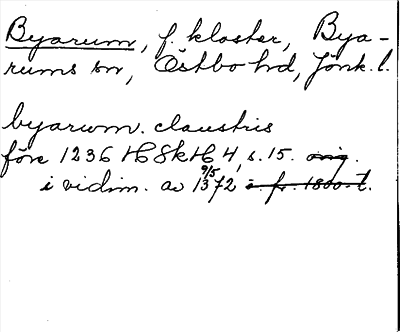 Byarum, f. kloster, Bya-
rums sn, Östbo hd, Jönk. l.
byarwm. claustris
före 1236 HSkH 4, s. 15. orig.
i vidim. av 9/5 1372 i fr. 1800-t.